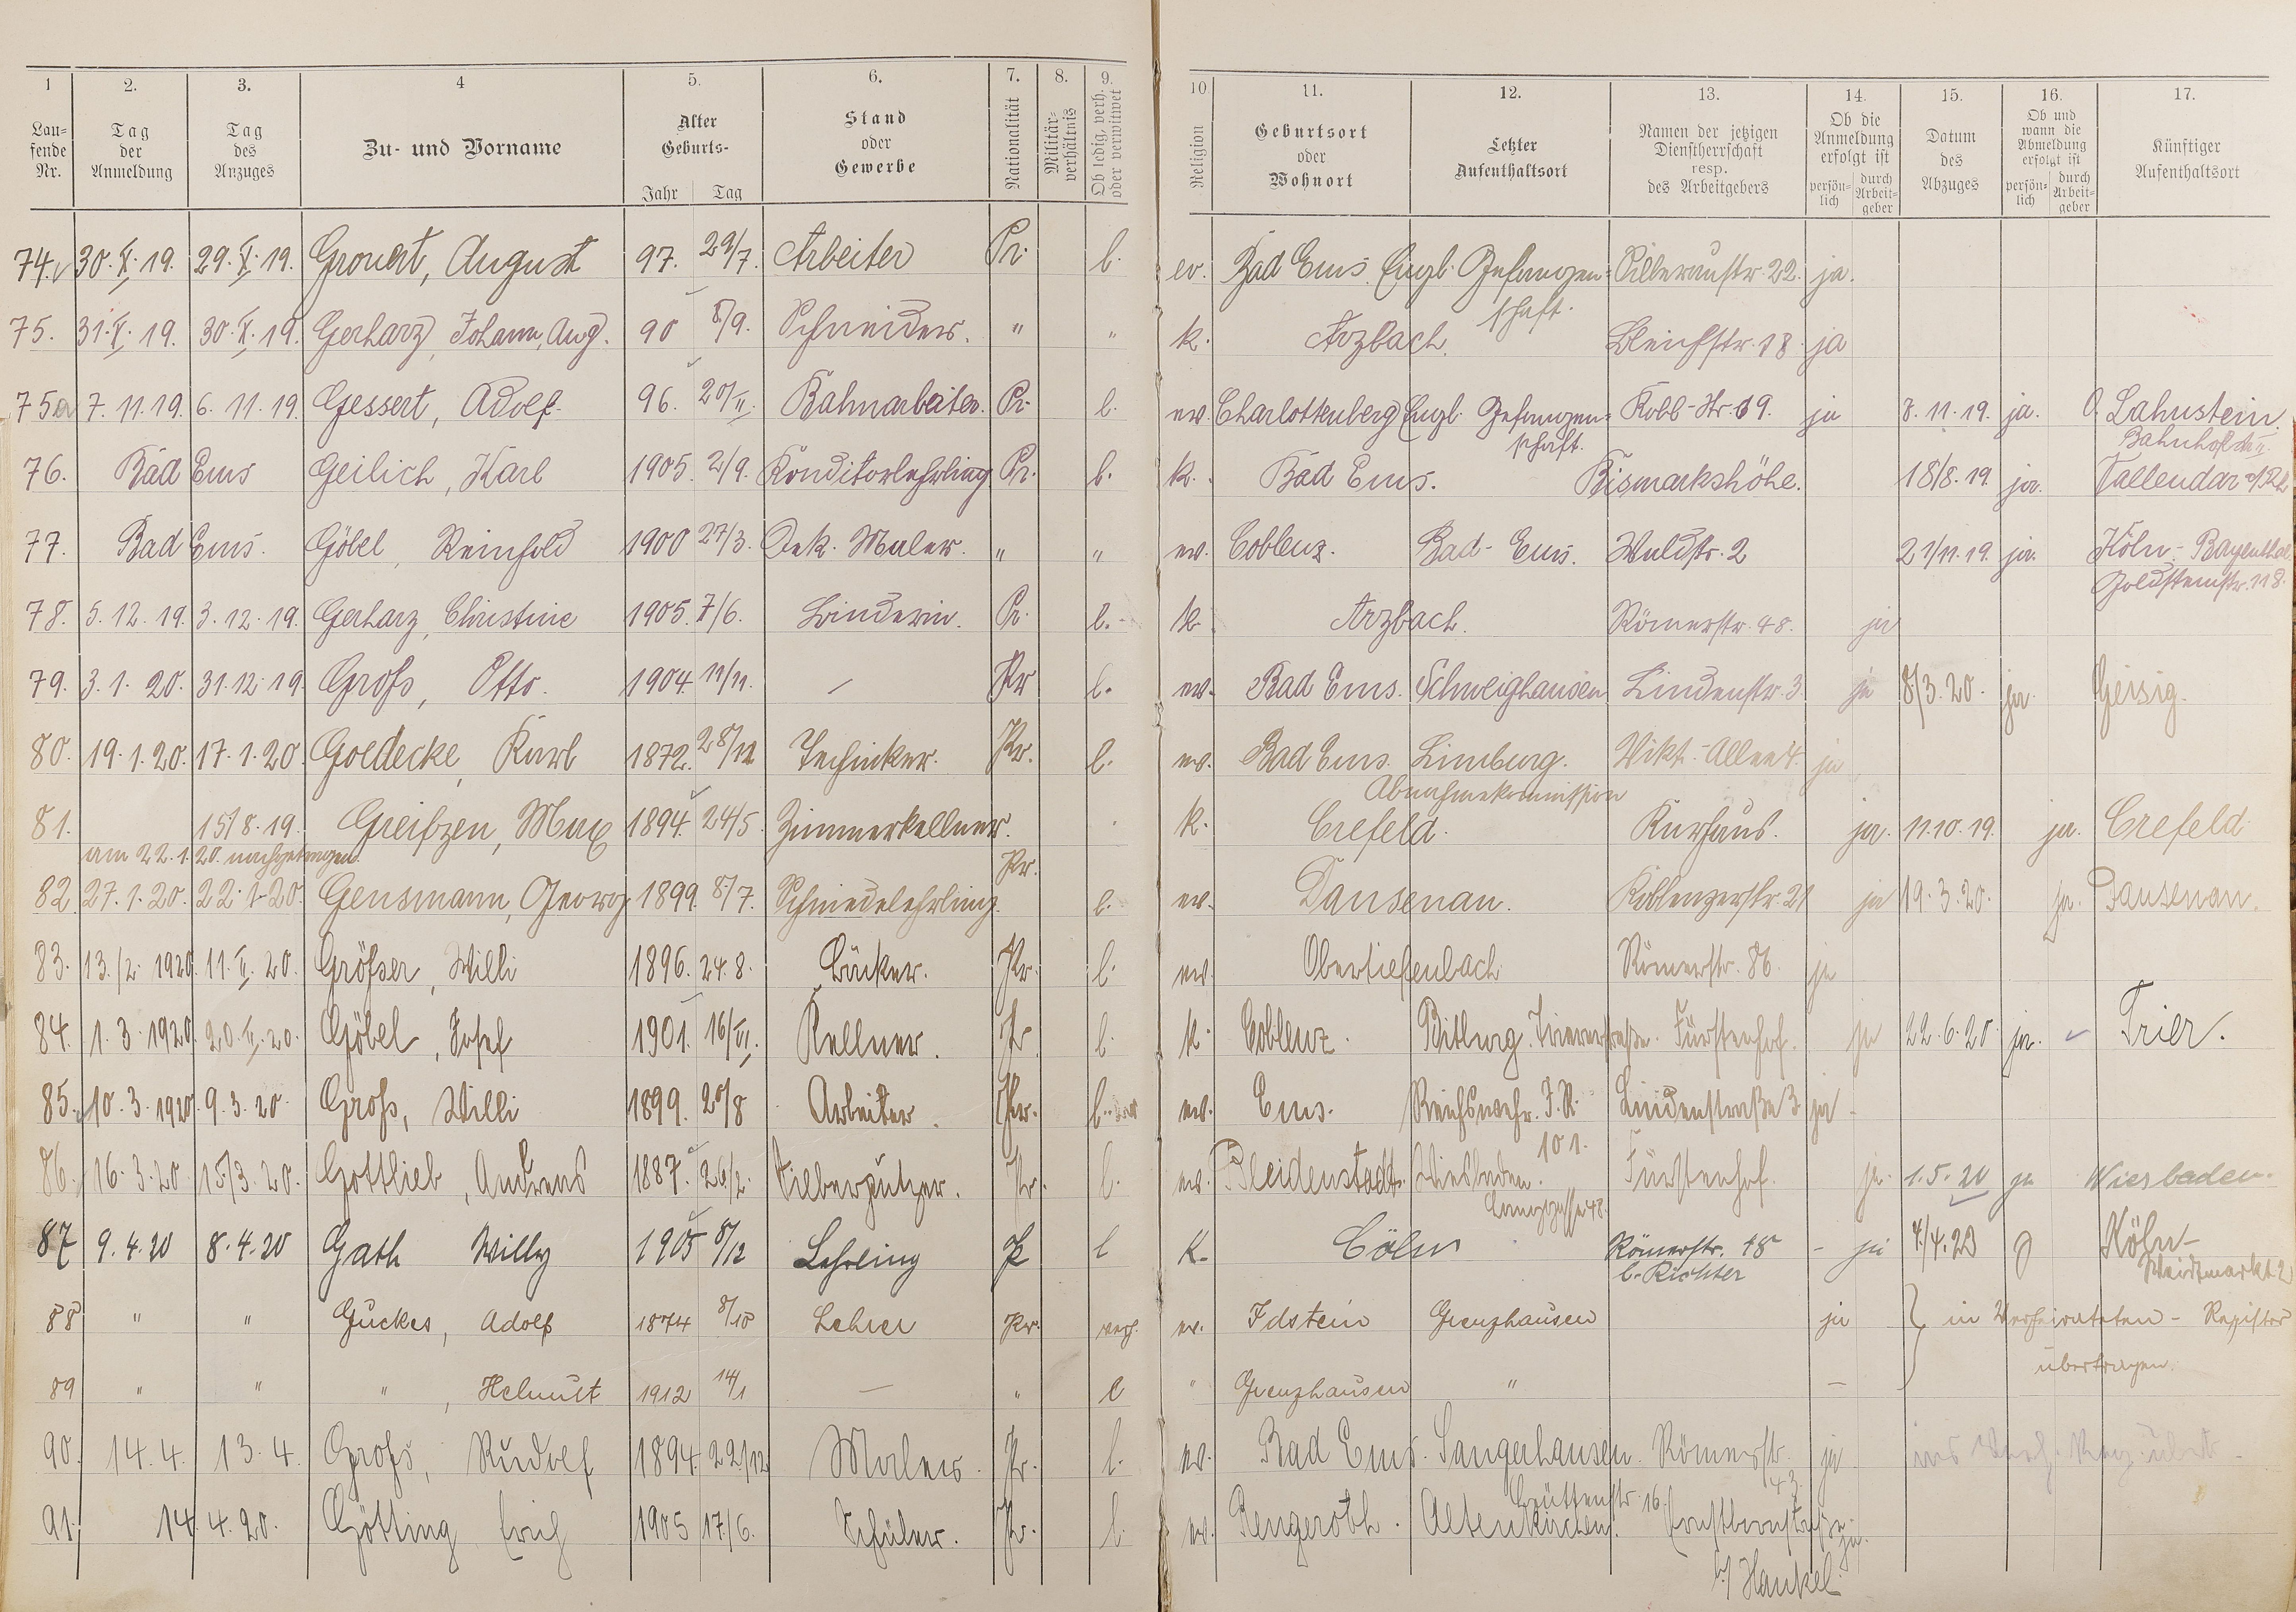 1 2. 3. 4 5. 6. 7. 8. 9. 10 11. 12. 13. 14. 15. 16. 17.
Laufende Nr. Tag der Anmeldung Tag des Anzuges Zu- und Vorname Alter Geburts- Jahr Tag Stand oder Gewerbe Nationalität Militärverhältnis Ob ledig, verh. oder verwitwet Religion Geburtsort oder Wohnort Letzter Aufenthaltsort Namen der jetzigen Dienstherrschaft resp. des Arbeitgebers Ob die Anmeldung erfolgt ist persönlich durch Arbeitgeber Datum des Abzuges Ob und wann die Abmeldung erfolgt ist persönlich durch Arbeitgeber Künftiger Aufenthaltsort
74. 30.X.19. 29.X.19. August 97. 29/7. Arbeiter Pr. l. ev. Bad Ems. Engl. Gefangen= Silberaustr. 22. ja.
schaft.
75. 31.X.19. 30.X.19. Gerharz, Johann, Aug. 90 8/9. Schneider. " " k. Arzbach. Bleichstr. 18 ja
75a 7.11.19. 6.11.19. Gessert, Adolf. 96. 20/II. Bahnarbeiter. Pr. l. ev. Charlottenberg Engl. Gefangen= Kobl-Str. 69. ja 8.11.19. ja. O. Lahnstein.
schaft.
76. Bad Ems Geilich, Karl 1905. 2/9. Konditorlehrling Pr. l. k. Bad Ems. Bismarkshöhe. 18/8.19. ja. Vallendar a/Rh
77. Bad Ems. Göbel, Reinhold 1900 27/3. Dek. Maler. " " ev. Coblenz. Bad-Ems. Waldstr. 2 21/11.19. ja. Köln-Bayenthal
Goldsteinstr. 118.
78. 5.12.19. 3.12.19. Gerharz, Christine 1905. 7/6. Binderin. Pr. l. k. Arzbach. Römerstr. 48. ja
79. 3.1.20. 31.12.19. Groß, Otto. 1904. 11/11. — Pr l. ev. Bad Ems. Schweighausen Lindenstr. 3 ja 8/3.20. ja Geisig.
80. 19.1.20. 17.1.20. Goedecke, Karl 1872. 28/12 Techniker. Pr. l. ev. Bad Ems. Limburg. Vikt.-Allee 4. ja
Abnahmekommission
81. 15/8.19. Greifzen, Max 1894. 24/5. Zimmerkellner. k. Crefeld. Kurhaus. ja. 11.10.19. ja. Crefeld
am 22.1.20. nachgetragen. Pr.
82. 27.1.20. 22.1.20. Gensmann, Georg 1899. 8/7. Schmiedelehrling. l. ev. Dausenau. Koblenzerstr. 21 ja 19.3.20. ja. Dausenau.
83. 13./2. 1920 11.II.20. Größer, Willi 1896. 24.8. Bäcker. Pr. l. ev. Obertiefenbach Römerstr. 86. ja
84. 1.3.1920. 20.II.20. Göbel, Josef 1901. 16/VI. Kellner. Pr l. k. Coblenz. Bitburg. Triererstraße. Fürstenhof. ja 22.6.20 ja. Trier.
85. 10.3.1920 9.3.20. Groß, Willi 1899. 20/8 Arbeiter. Pr. l. ev. Ems. Reichswehr. J.R. Lindenstraße 3. ja
101.
86. 16.3.20 15/3.20. Gottlieb, Andreas 1887. 26/2. Silberputzer. Pr. l. ev. Bleidenstadt. Wiesbaden. Fürstenhof. ja. 1.5.20 ja Wiesbaden.
Langgasse 48.
87 9.4.20 8.4.20 Gath Willy 1905 8/12 Lehrling P l K. Cöln Römerstr. 48 - ja 4/4.23 Köln-
b. Richter Waidmarkt 2
88 " " Guckes, Adolf 1874 8/10 Lehrer Pr. verh. ev. Idstein Grenzhausen ja } in Verheirateten-Register
übertragen.
89 " " ", Helmut 1912 14/1 — " l " Grenzhausen " —
90. 14.4. 13.4. Groß, Rudolf 1894 22/12 Maler. Pr. l. ev. Bad Ems. Sangerhausen. Römerstr. ja
43
Hüttenstr. 16.
91. 14.4.20. Götting Erich 1905 17/6. Schüler. Pr. l. ev. Rengeroth. Altenkirchen. Ernstbornstraße ja.
b/ Hankel.